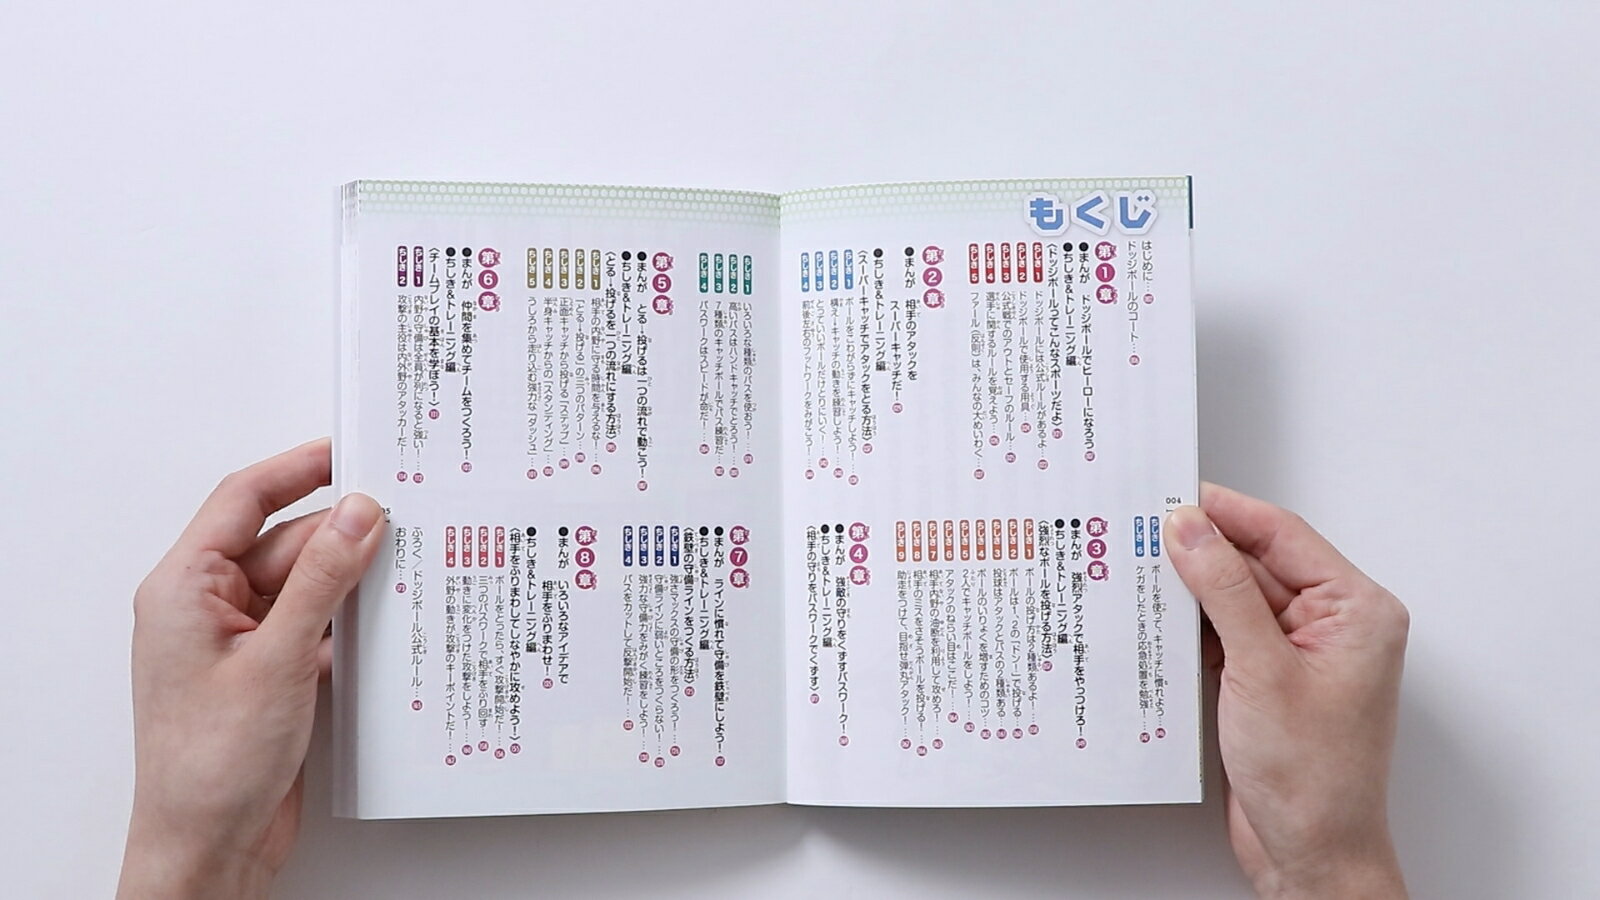 もくじ
はじめに…
ドッジボールのコート…
第1章
●まんが ドッジボールでヒーローになろう
●ちしき&トレーニング編
〈ドッジボールってこんなスポーツだよ〉
ちしき1 ドッジボールには公式ルールがあるよ…
ちしき2 ドッジボールで使用する用具…
ちしき3 公式戦でのアウトとセーフのルール…
ちしき4 選手に関するルールを覚えよう…
ちしき5 ファール(反則)は、みんなの大めいわく…
第2章
●まんが 相手のアタックを
スーパーキャッチだ!
●ちしき&トレーニング編
〈スーパーキャッチでアタックをとる方法〉
ちしき1 ボールをこわがらずにキャッチしよう!…
ちしき2 構え→キャッチの動きを練習しよう!…
ちしき3 とっていいボールだけとりにいく!…
ちしき4 前後左右のフットワークをみがこう!…
004
ちしき5 ボールを使って、キャッチに慣れよう…
ちしき6 ケガをしたときの応急処置を勉強!…
第3章
●まんが 強烈アタックで相手をやっつけろ!
●ちしき&トレーニング編
〈強烈なボールを投げる方法〉
ちしき1 ボールの投げ方は2種類あるよ!…
ちしき2 ボールは1、2の「ドン!」で投げる…
ちしき3 投球はアタックとパスの2種類ある…
ちしき4 ボールのいりょくを増すためのコツ…
ちしき5 2人でキャッチボールをしよう!…
ちしき6 アタックのねらい目はここだ!…
ちしき7 相手内野の油断を利用して攻めろ!…
ちしき8 相手のミスをさそうボールを投げる!…
ちしき9 助走をつけて、目指せ弾丸アタック!…
第4章
●まんが 強敵の守りをくずすパスワーク!
●ちしき&トレーニング編
〈相手の守りをパスワークでくずす〉
ちしき1 いろいろな種類のパスを使おう!…
ちしき2 高いパスはハンドキャッチでとろう!…
ちしき3 7種類のキャッチボールでパス練習だ…
ちしき4 パスワークはスピードが命だ!…
第5章
●まんが とる→投げるは一つの流れで動こう!
●ちしき&トレーニング編
〈とる→投げるを一つの流れにする方法〉
ちしき1 相手の内野に守る時間を与えるな!…
ちしき2 「とる→投げる」の三つのパターン…
ちしき3 正面キャッチから投げる「ステップ」…
ちしき4 半身キャッチからの「スタンディング」…
ちしき5 うしろから走り込む強力な「ダッシュ」…
第6章
●まんが 仲間を集めてチームをつくろう!
●ちしき&トレーニング編
〈チームプレイの基本を学ぼう!〉
ちしき1 内野の守備は全員が列になると強い!…
ちしき2 攻撃の主役は内外野のアタッカーだ!…
第7章
●まんが ラインに慣れて守備を鉄壁にしよう!
●ちしき&トレーニング編
〈鉄壁の守備ラインをつくる方法〉
ちしき1 強さマックスの守備の形をつくろう!…
ちしき2 守備ラインに弱いところをつくらない!…
ちしき3 強力な守備力をみがく練習をしよう!…
ちしき4 パスをカットして反撃開始だ!…
第8章
●まんが いろいろなアイデアで
相手をふりまわせ!
●ちしき&トレーニング編
〈相手をふりまわしてしなやかに攻めよう!〉
ちしき1 ボールをとったら、すぐ攻撃開始だ!…
ちしき2 三つのパスワークで相手をふり回す…
ちしき3 動きに変化をつけた攻撃をしよう!…
ちしき4 外野の動きが攻撃のキーポイントだ!…
ふろく/ドッジボール公式ルール…
おわりに…